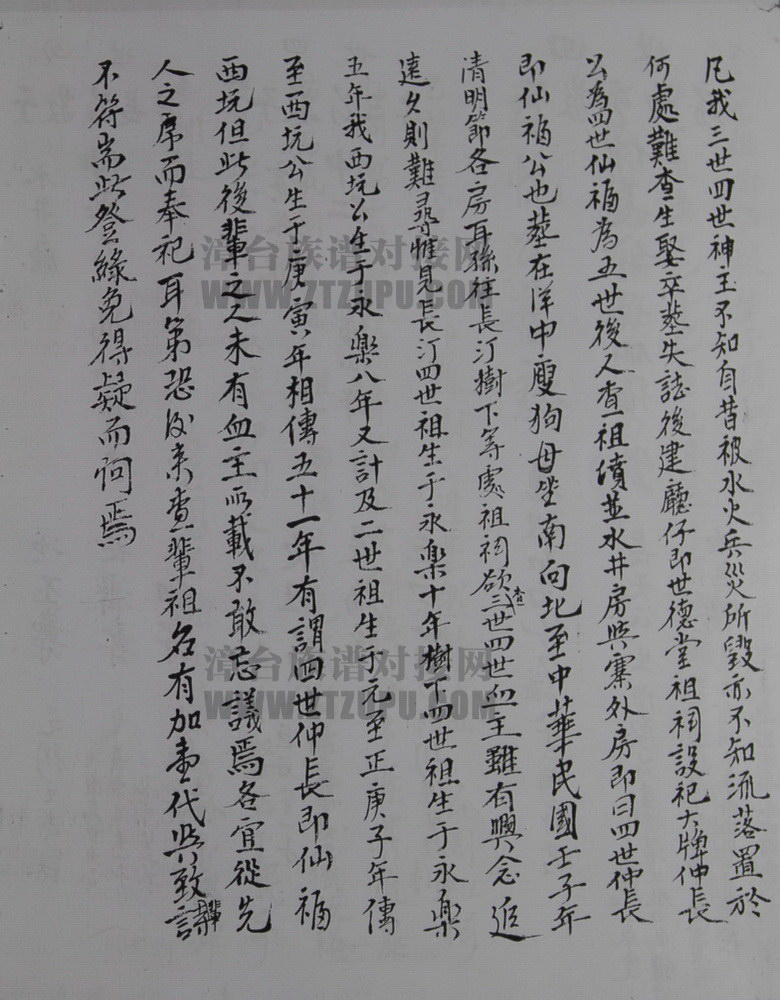 凡我三世四世神主不知自昔被水火兵災所毀亦不知流落置於
何處難查生娶卒塟失誌後建廳仔即世德堂祖祠設祀大牌仲長
公為四世仙福為五世後人查祖墳並水井房與寨外房即曰四世仲長
即仙福公也塟在洋中廋狗母坐南向北至中華民國壬子年
清明節各房耳孫往長汀樹下等處祖祠欲查三世四世血主雖有興念追
遠久則難尋惟見長汀四世祖生于永樂十年樹下四世祖生于永樂
五年我西坑公生于永樂八年又計及二世祖生于元至正庚子年傳
至西坑公生于庚寅年相傳五十一年有謂四世仲長即仙福
西坑但此後輩之人未有血主所載不敢忘議焉各宜從先
人之席而奉祀耳第恐後来查輩祖名有加壹代與致講
不符耑此登錄免得疑而問焉
漳台族谱对接网
WWW.ZTZUPU.COM
漳台族谱对接网
WWW.ZTZUPU.COM